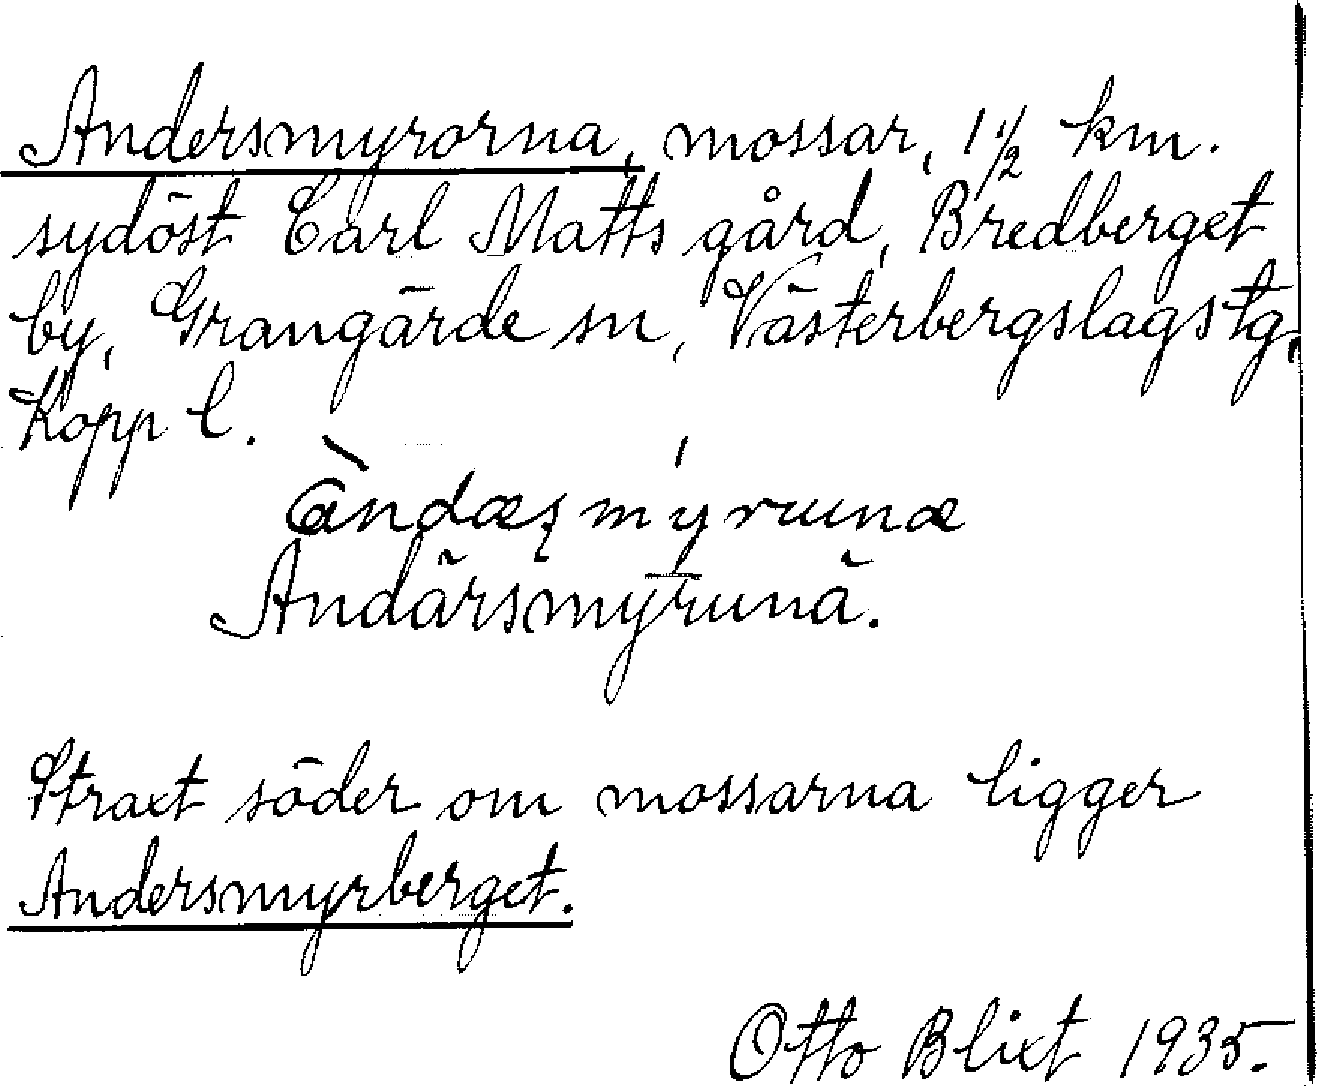 Andersmyrorna, mossar, 1 1/2 km.
sydöst Carl Matts gård, Bredberget
by, Grangärde sn, Västerbergslags tg,
Kopp l.
àndæʂmýrunæ
Andärsmyrunä.
Straxt söder om mossarna ligger
Andersmyrberget.
Otto Blixt 1935.